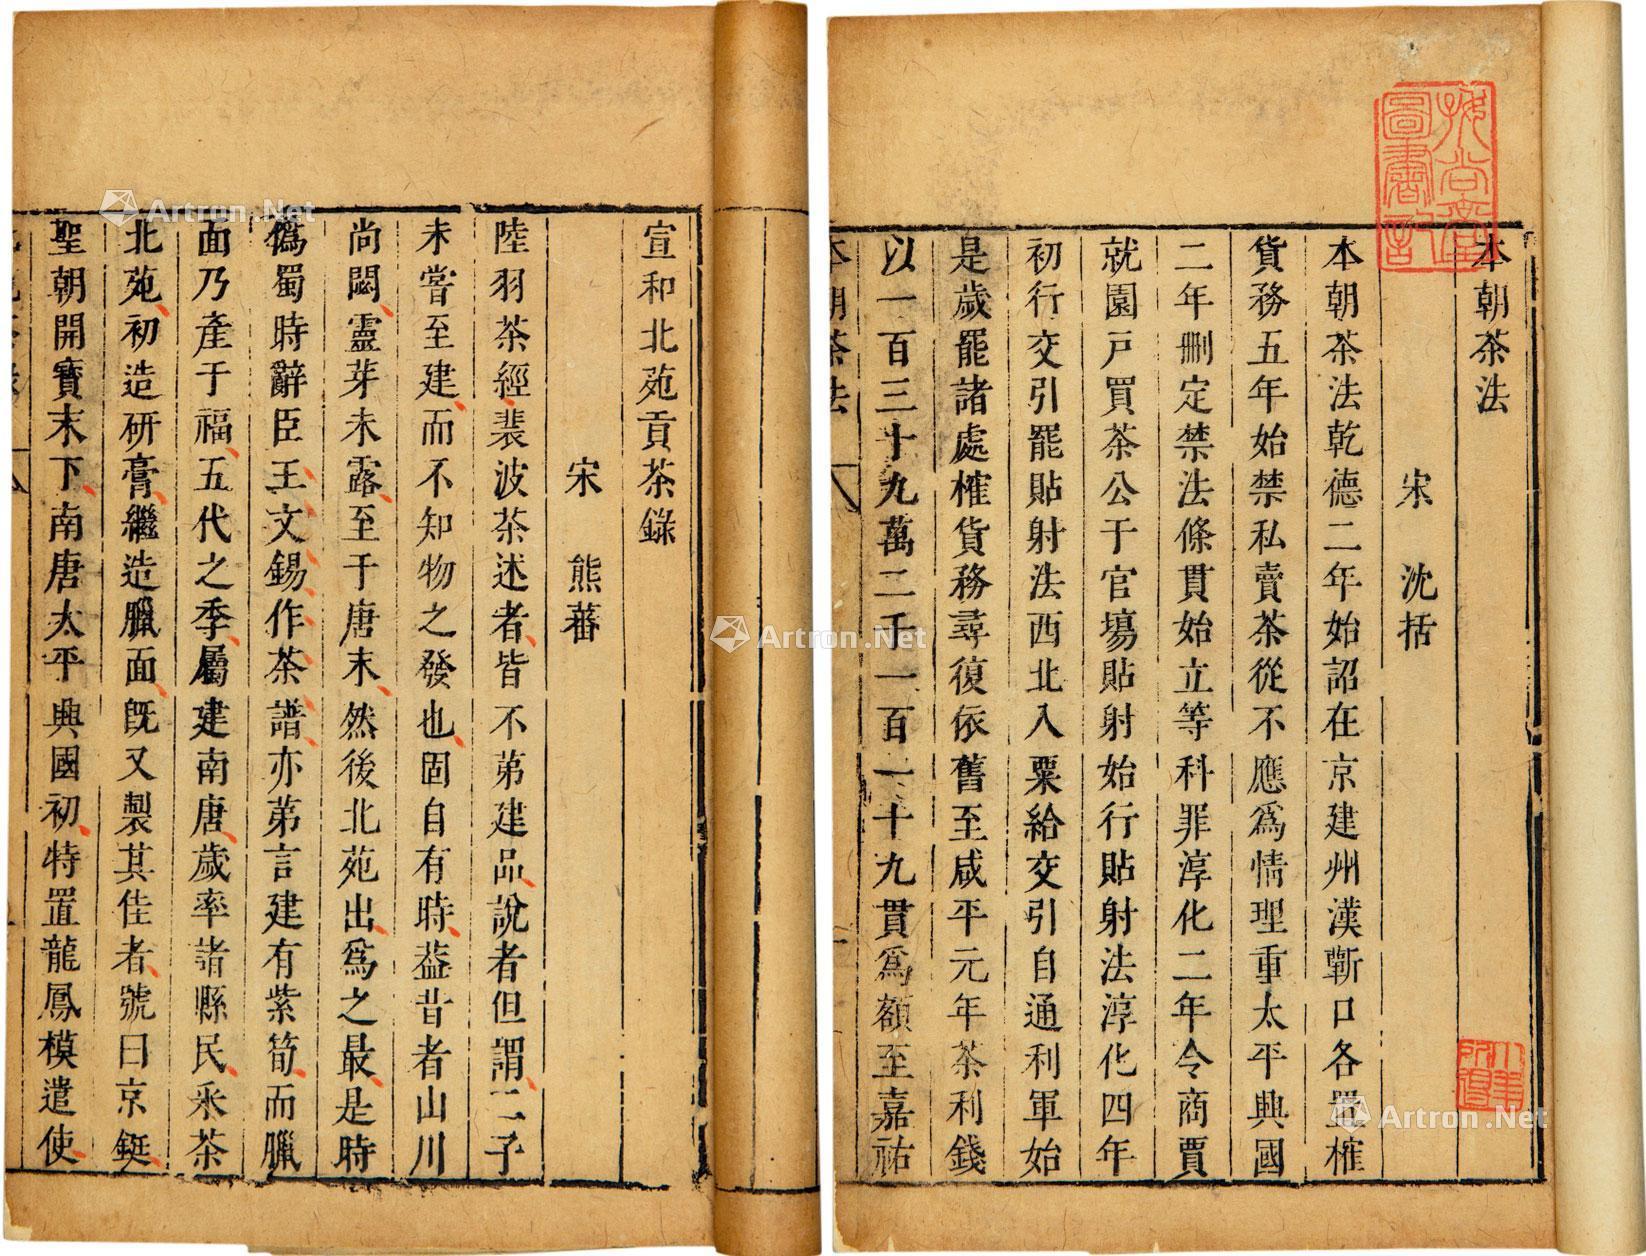 本朝茶法
宋 沈括
本朝茶法乾德二年始詔在京建州漢蘄口各置榷
貨務五年始禁私賣茶從不應爲情理重太平興國
二年刪定禁法條貫始立等科罪淳化二年令商賈
就園戸買茶公于官場貼射始行貼射法淳化四年
初行交引罷貼射法西北入粟給交引自通利軍始
是歲罷諸處榷貨務尋復依舊至咸平元年茶利錢
以一百三十九萬二千一百一十九貫爲額至嘉祐
本朝茶法
圖書記
宣和北苑貢茶錄
宋 熊蕃
陸羽茶經裴汶茶述者皆不第建品說者但謂二子
未嘗至建而不知物之發也固自有時葢昔者山川
尚閟靈芽未露至于唐末然後北苑出爲之最是時
僞蜀時辭臣王文錫作茶譜亦第言建有紫筍而臘
面乃產于福五代之季屬建南唐歲率諸縣民采茶
北苑初造研膏繼造臘面旣又製其佳者號曰京鋌
聖朝開寶末下南唐太平興國初特置龍鳳模遣使
Artron.Net
Artron.Net
Artron.Net